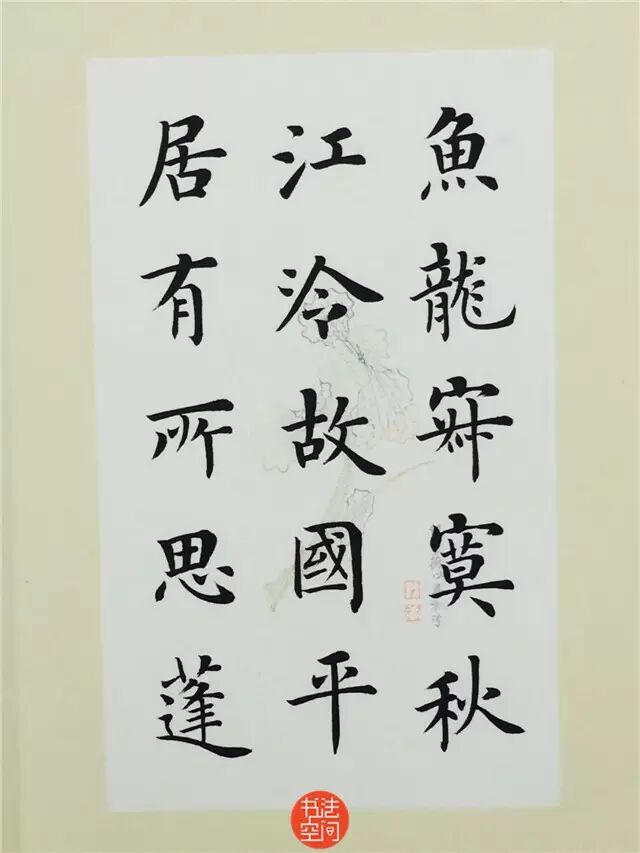 魚龍寂寞秋
江冷故國平
居有所思蓬
书法
空间